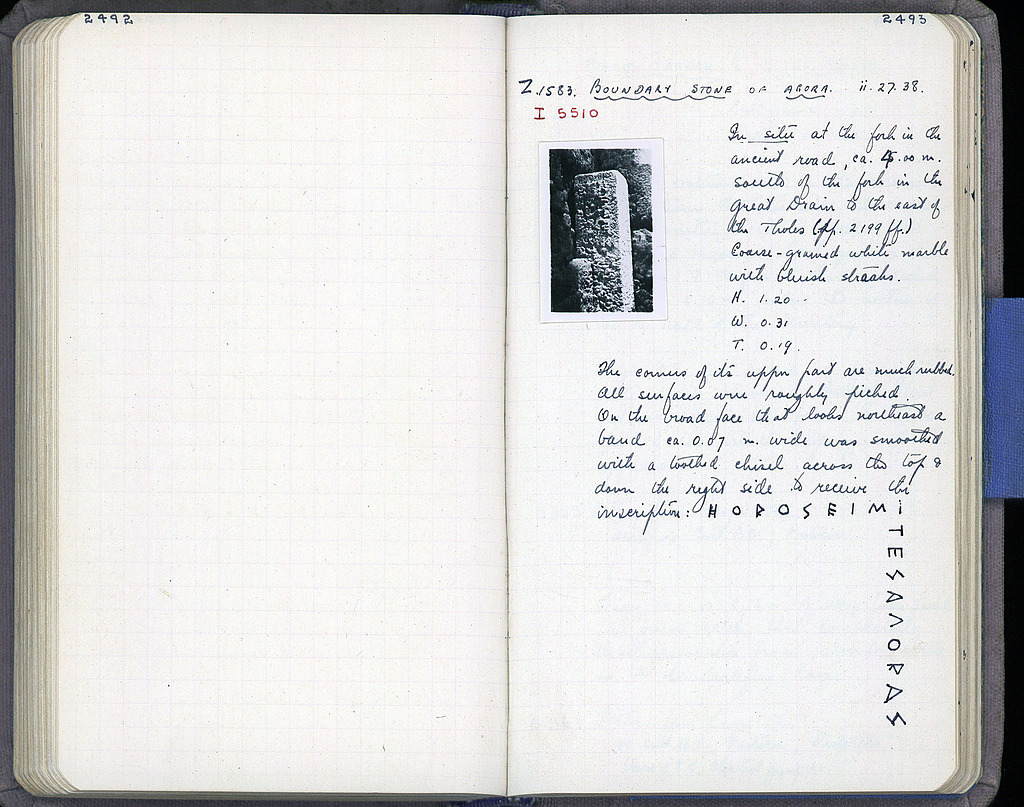 2492
2493
Z.1583. BOUNDARY STONE OF AGORA. ii.27.38.
I 5510
In situ at the fork in the
ancient road, ca. 4.00 m.
south of the fork in the
Great Drain to the east of
the Tholos (pp. 2199 ff.)
Coarse-grained white marble
with bluish streaks.
H. 1.20
W. 0.31
T. 0.19.
The corners of its upper part are much rubbed.
All surfaces were roughly picked.
On the broad face that looks northeast a
band ca. 0.07 m. wide was smoothed
with a toothed chisel across the top &
down the right side to receive the
inscription: HOROSEIMI
TESAΛORAS